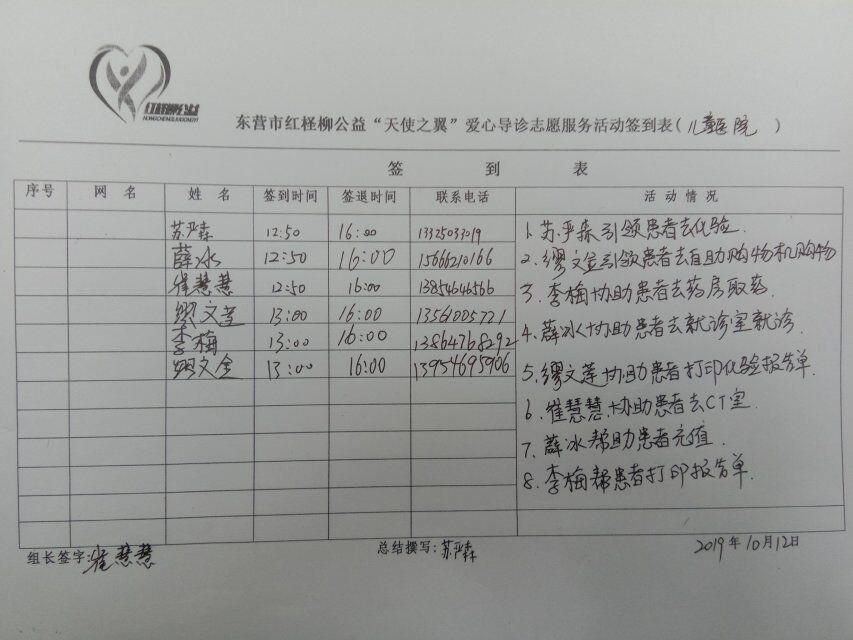 红柽柳公益
HONGCHENGLIUGONGYI
东营市红柽柳公益“天使之翼”爱心导诊志愿服务活动签到表(儿童医院)
签 到 表
序号 网 名 姓 名 签到时间 签退时间 联系电话 活 动 情 况
苏严森 12:50 16:00 13325033019
薛冰 12:50 16:00 15666210166
崔慧慧 12:50 16:00 13854646566
缪文莲 13:00 16:00 13561005721
李梅 13:00 16:00 13864768292
缪文金 13:00 16:00 13954695906
1. 苏严森引领患者去化验.
2. 缪文金引领患者去自助购物机购物
3. 李梅协助患者去药房取药.
4. 薛冰协助患者去就诊室就诊.
5. 缪文莲协助患者打印化验报告单.
6. 崔慧慧协助患者去CT室.
7. 薛冰帮助患者充值.
8. 李梅帮患者打印报告单.
组长签字:崔慧慧 总结撰写:苏严森 2019年10月12日